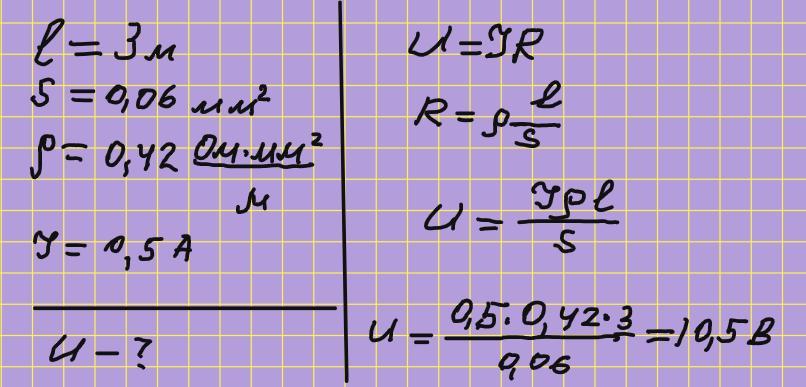 l = 3 м
S = 0,06 мм²
ρ = 0,42 Ом·мм²/м
I = 0,5 А
U - ?
U = IR
R = ρ l/S
U = Iρl/S
U = 0,5·0,42·3/0,06 = 10,5 В